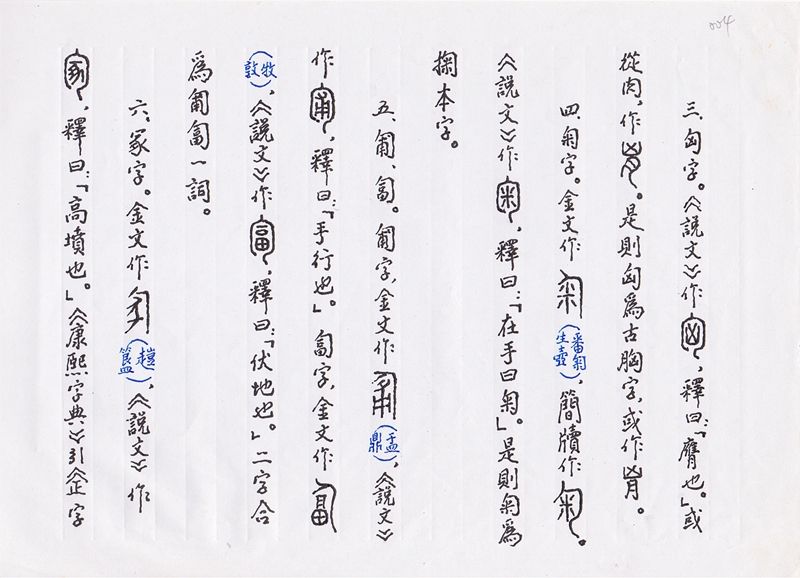 004
三、匈字。《說文》作，釋曰：「膺也。」或
從肉，作。是則匈為古胸字，或作胷。
四、匊字。金文作（番匊生壺），簡牘作。
《說文》作，釋曰：「在手曰匊」。是則匊為
掬本字。
五、匍、匐。匍字，金文作（盂鼎），《說文》
作，釋曰：「手行也」。匐字，金文作
（牧敦），《說文》作，釋曰：「伏地也。」二字合
為匍匐一詞。
六、冢字。金文作（簋），《說文》作
，釋曰：「高墳也。」《康熙字典》引字